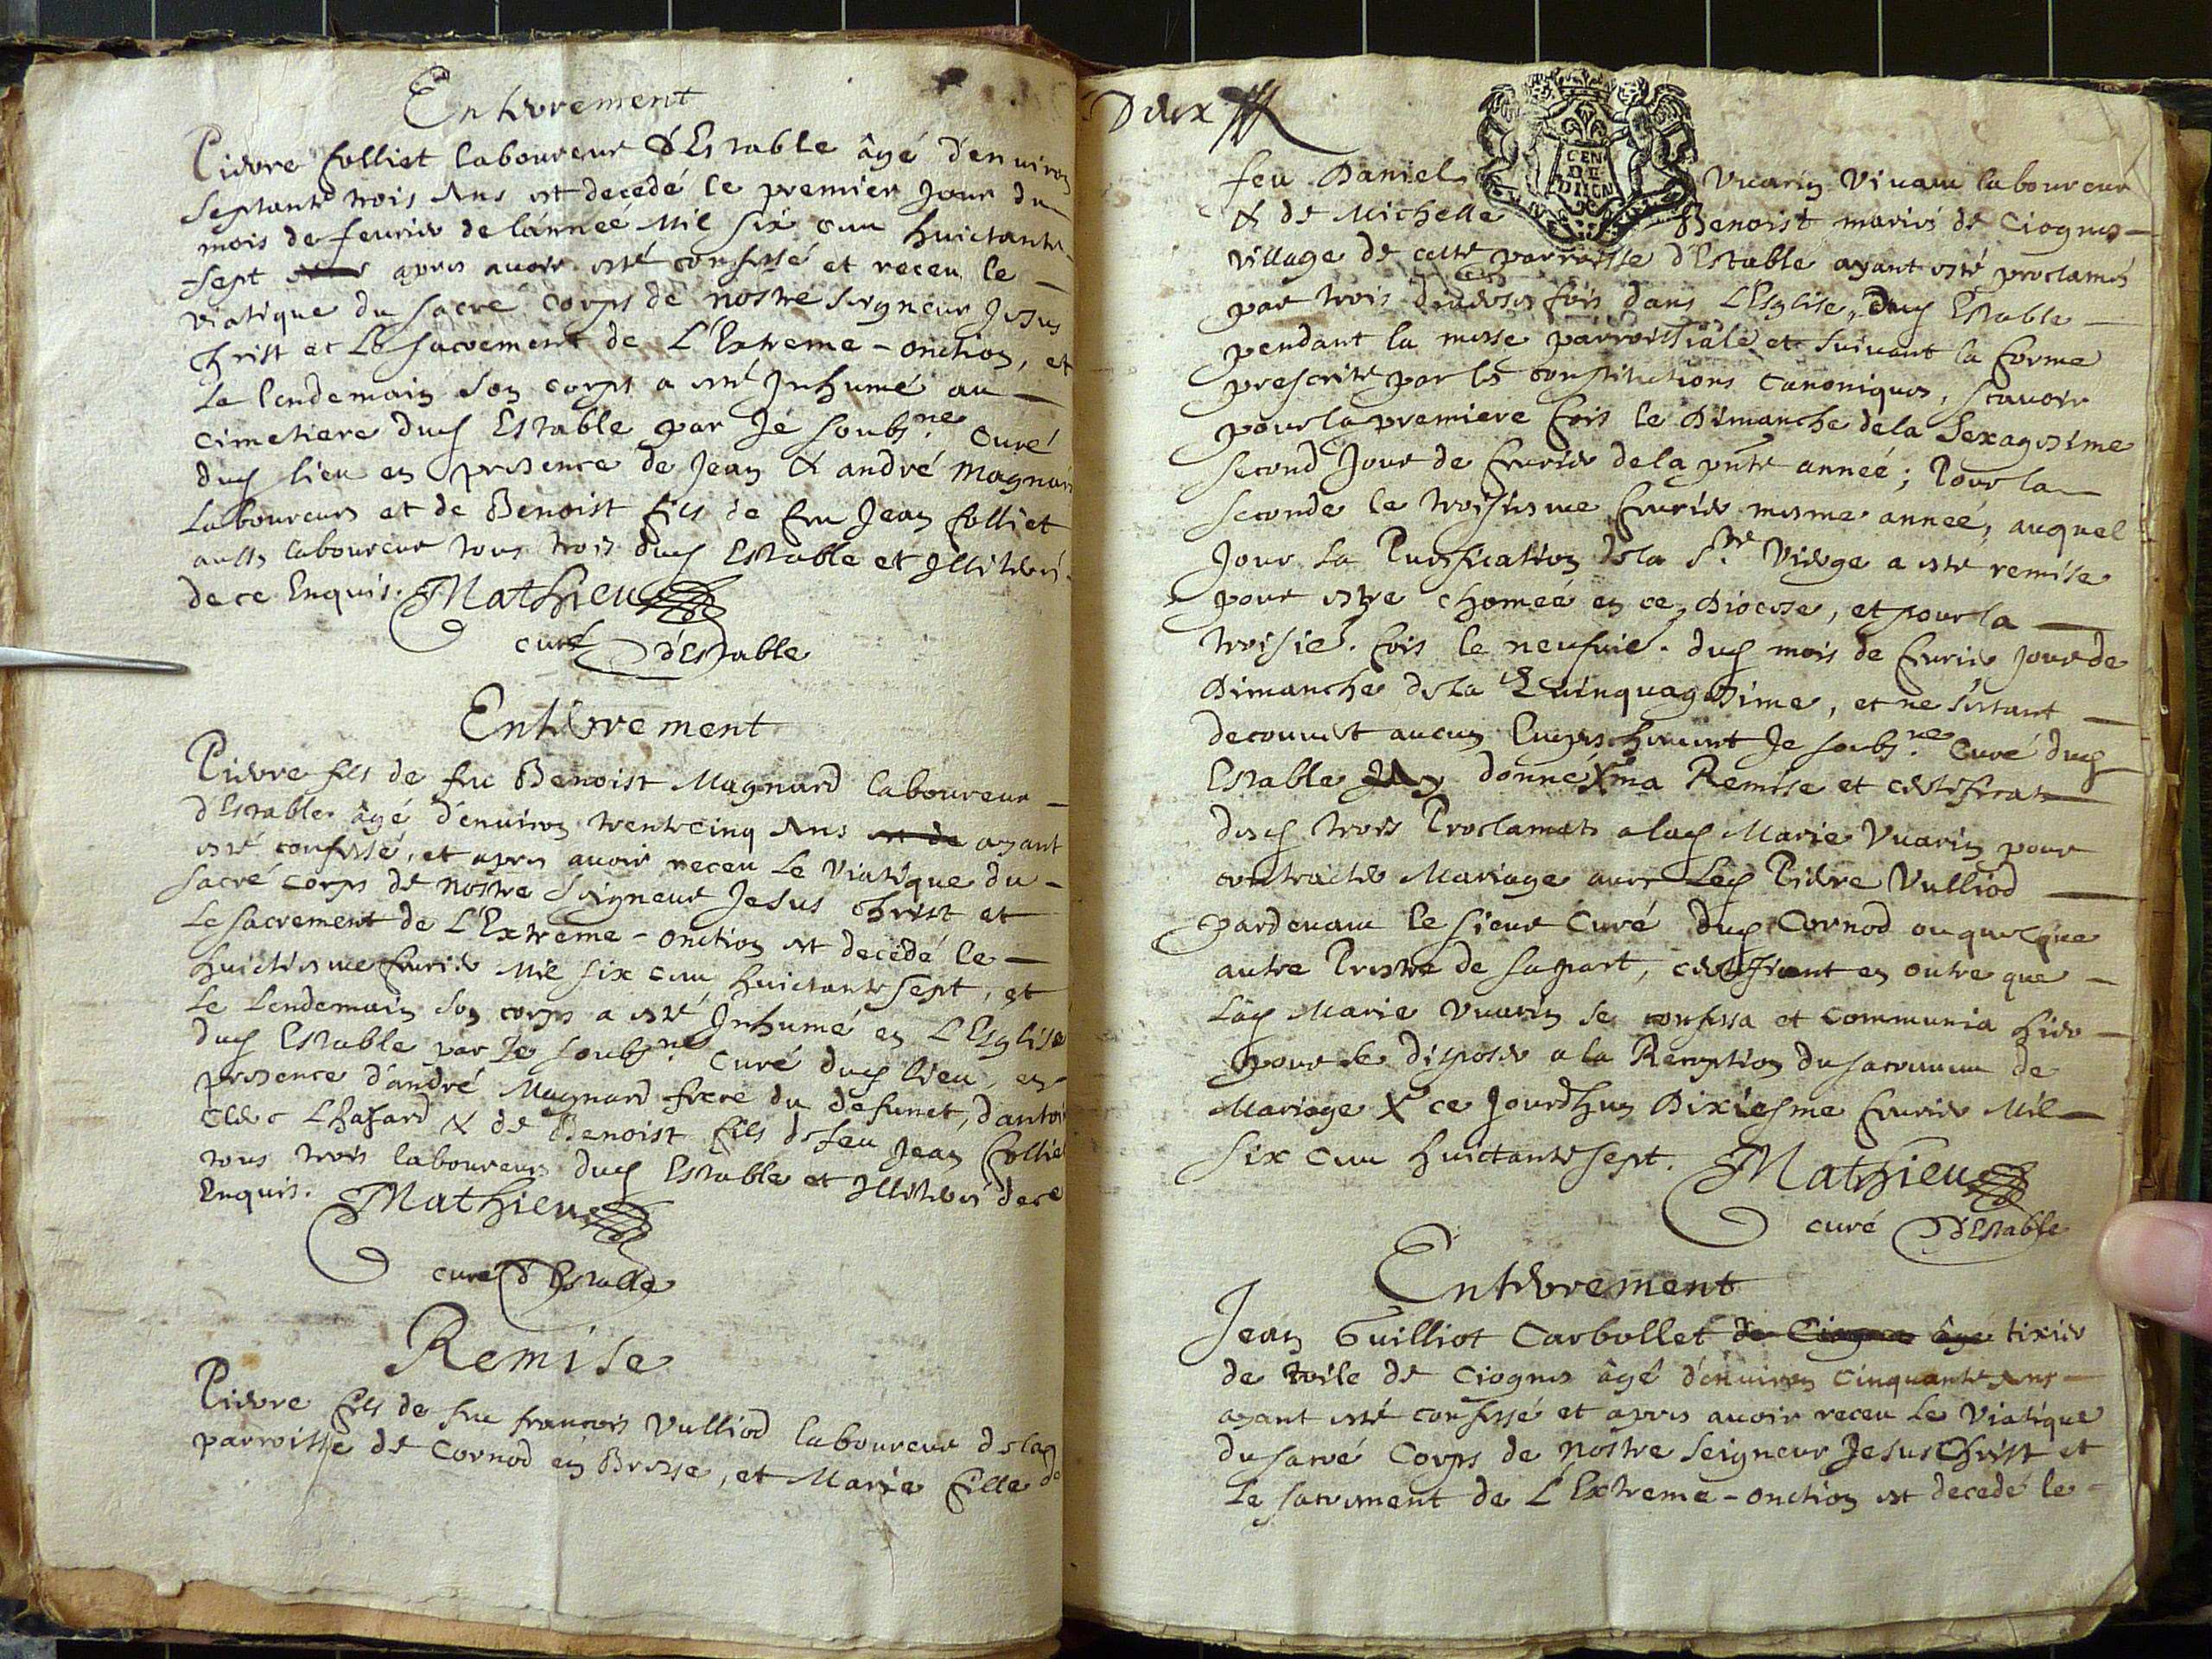 Enterrement
Pierre folliet laboureur d'Estable âgé d'enuiron
septante trois Ans est decedé le premier Jour du
mois de feurier de lánneé Mil six cens huictante
sept apres auoir esté confessé et receu le
viatique du sacré corps de nostre seigneur Jesus
Christ et Le sacrement de L'Extreme-onction, et
Le lendemain son corps a esté Inhumé au
cimetiere dud Estable par Je soubs.ne Curé
dud lieu en presence de Jean & andré Magnard
Laboureurs et de Benoist fils de feu Jean folliet
aussy laboureur tous trois dud Estable et Illiterés
de ce Enquis. Mathieu
curé d'Estable
Enterrement
Pierre fils de feu Benoist Magnard laboureur
d'Estable âgé d'enuiron trente cinq Ans est de ayant
esté confessé, et apres auoir receu Le Viatique du
sacré corps de nostre Seigneur Jesus Christ et
Le sacrement de L'Extreme-onction est decedé le
huictiesme feurier Mil six cens huictante sept, et
Le Lendemain son corps a esté Inhumé en L'Eglise
dud Estable par Je soubs.ne Curé dud lieu, en
presence d'andré Magnard frere du defunct, d'antoi
Clerc & de Benoist fils de feu Jean folliet
tous trois laboureurs dud Estable et Illiterés de ce
Enquis. Mathieu
curé d'Estable
Remise
Pierre fils de feu francois Vulliod laboureur de la
parroisse de Cornod en Bresse, et Marie fille de
Deux
feu Daniel Vuarin Viuant laboureur
& de Michelle Benoist mariés de Ciognes
village de cette parroisse d'Estable ayant esté proclamés
par trois diuerses fois dans L'Esglise dud Estable
pendant la messe parroissiale et suiuant la forme
prescrite par les constitutions Canoniques, scauoir
pour la premiere fois le Dimanche de la Sexagesime
second Jour de feurier de la pnte anneé; Pour la
seconde le troisiesme feurier mesme anneé, auquel
Jour la Purification de la ste Vierge a esté remise
pour estre choméé en ce Diocese, et pour la
troisie. fois le neufuie. dud mois de feurier jour de
Dimanche de la Quinquagesime, et ne s'estant
decouuert aucun Empeschement Je soubs.ne Curé dud
Estable donné ma Remise et certificat
desd trois Proclamats a lad Marie Vuarin pour
contracter Mariage auec Led Pierre Vulliod
pardeuant le sieur Curé dud Cornod ou quelque
autre Prestre de sa part, certifiant en outre que
Lad Marie Vuarin se confessa et communia hier
pour se disposer a la Reception du sacrement de
Mariage ce Jourdhuy Dixiesme feurier Mil
six cens huictante sept. Mathieu
curé d'Estable
Enterrement
Jean Guilliot Carbollet de Ciognes âgé tixier
de toile de Ciognes âgé d'enuiron Cinquante Ans
ayant esté confessé et apres auoir receu Le Viatique
du sacré Corps de nostre Seigneur Jesus Christ et
Le sacrement de L'Extreme-onction est decedé le